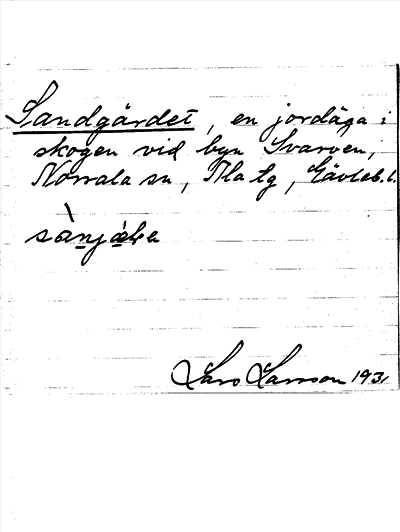 Sandgärdet, en jordäga i
skogen vid byn Svarven,
Norrala sn, Ala tg, Gävleb. l.
Lars Larsson 1931